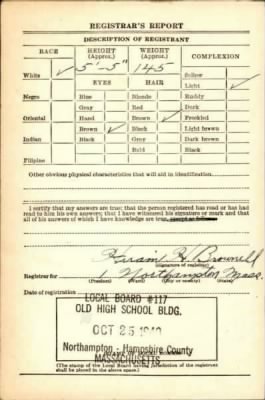 REGISTRAR'S REPORT
DESCRIPTION OF REGISTRANT
RACE HEIGHT (Approx.) WEIGHT (Approx.) COMPLEXION
5'-5" 145 Sallow
White ✓ EYES HAIR Light ✓
Negro Blue Blonde Ruddy
Gray Red Dark
Oriental Hazel Brown ✓ Freckled
Brown ✓ Black Light brown
Indian Black Gray Dark brown
Bald Black
Filipino
Other obvious physical characteristics that will aid in identification
I certify that my answers are true; that the person registered has read or has had
read to him his own answers; that I have witnessed his signature or mark and that
all of his answers of which I have knowledge are true, except as follows:
Hiram H. Brownell
(Signature of registrar)
Registrar for 1 Northampton Mass.
(Precinct) (Ward) (City or county) (State)
Date of registration
LOCAL BOARD #117
OLD HIGH SCHOOL BLDG.
OCT 25
Northampton - Hampshire County
MASSACHUSETTS
(STAMP OF LOCAL BOARD)
(The stamp of the Local Board having jurisdiction of the registrant
shall be placed in the above space.)